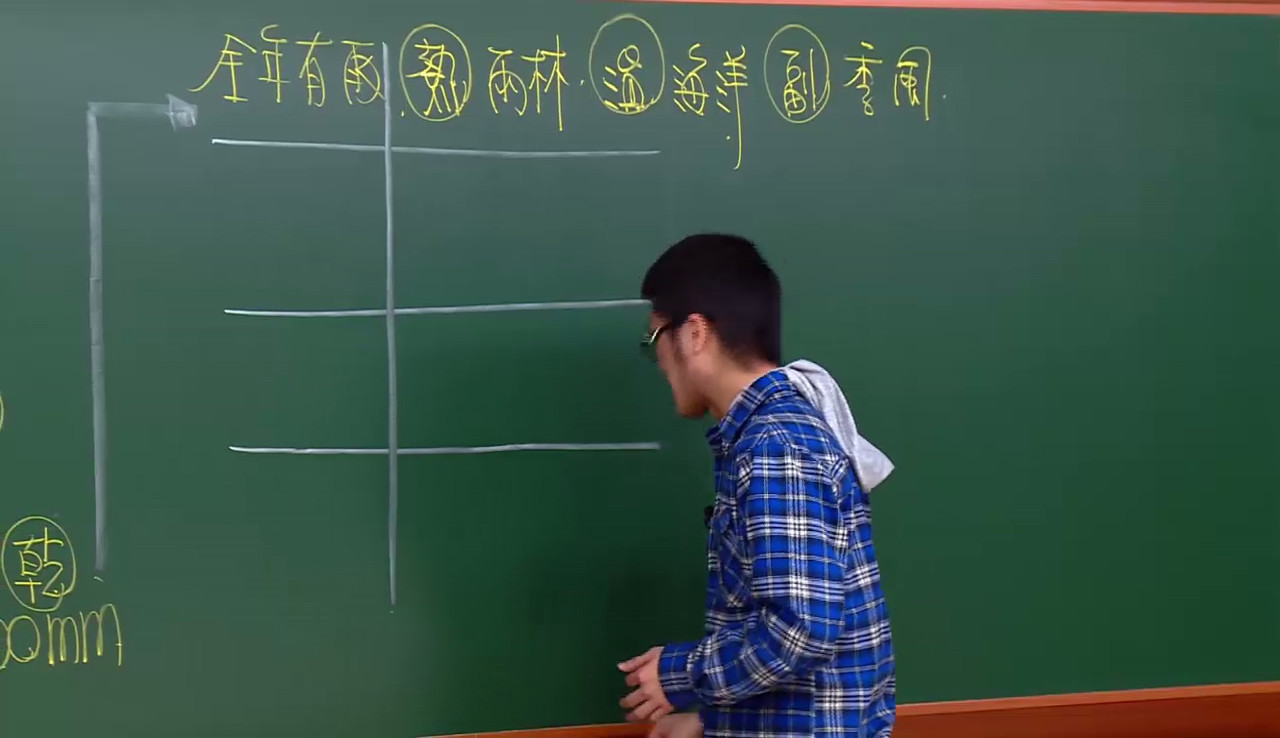 全年有雨 熱雨林.溫海洋 副季風.
乾
00mm